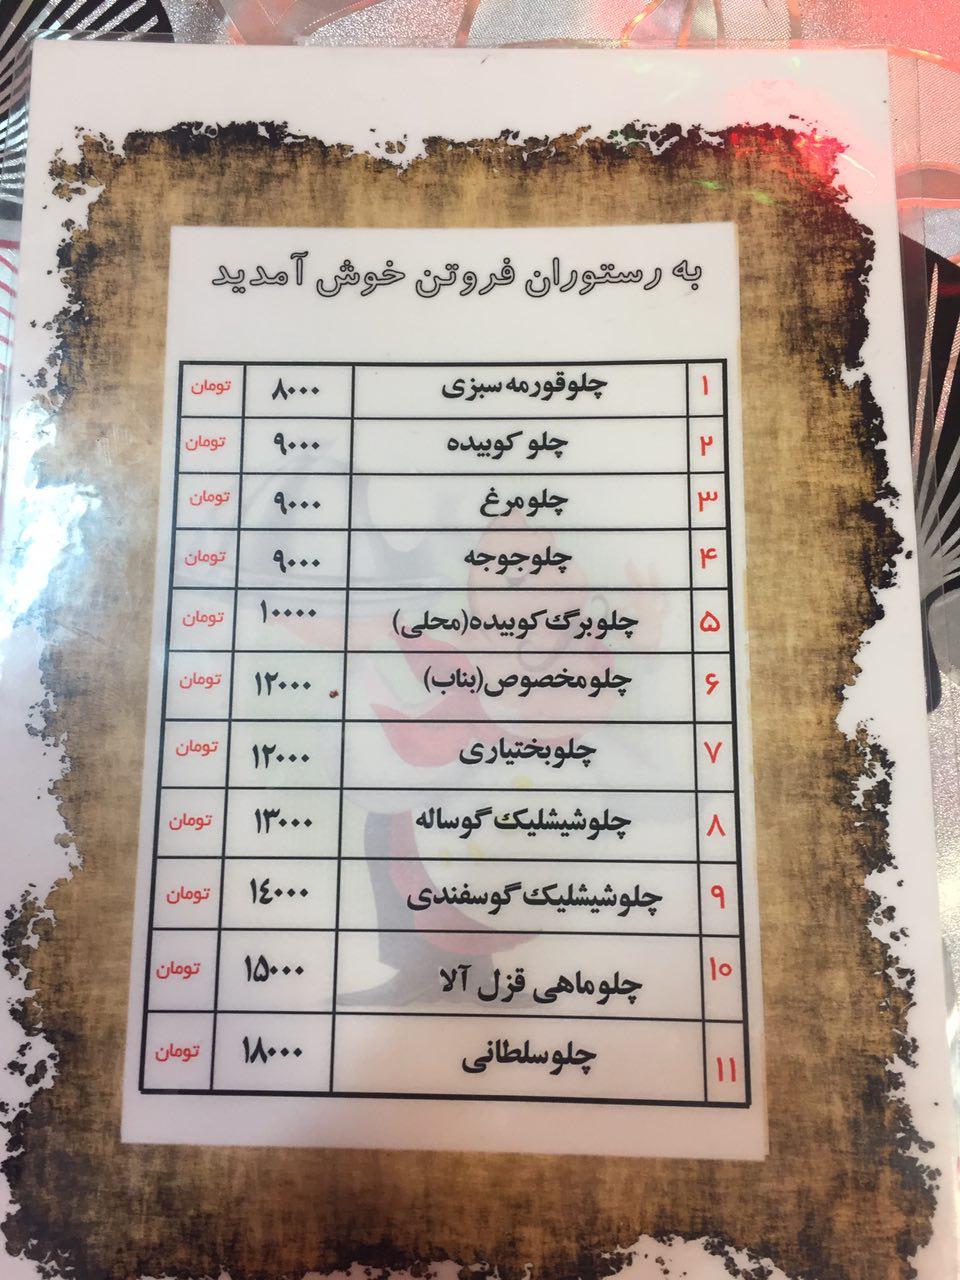 به رستوران فروتن خوش آمدید
۱ چلوقورمه سبزی ۸۰۰۰ تومان
۲ چلو کوبیده ۹۰۰۰ تومان
۳ چلومرغ ۹۰۰۰ تومان
۴ چلوجوجه ۹۰۰۰ تومان
۵ چلوبرگ کوبیده(محلی) ۱۰۰۰۰ تومان
۶ چلومخصوص(بناب) ۱۲۰۰۰ تومان
۷ چلوبختیاری ۱۲۰۰۰ تومان
۸ چلوشیشلیک گوساله ۱۳۰۰۰ تومان
۹ چلوشیشلیک گوسفندی ۱۴۰۰۰ تومان
۱۰ چلوماهی قزل آلا ۱۵۰۰۰ تومان
۱۱ چلوسلطانی ۱۸۰۰۰ تومان